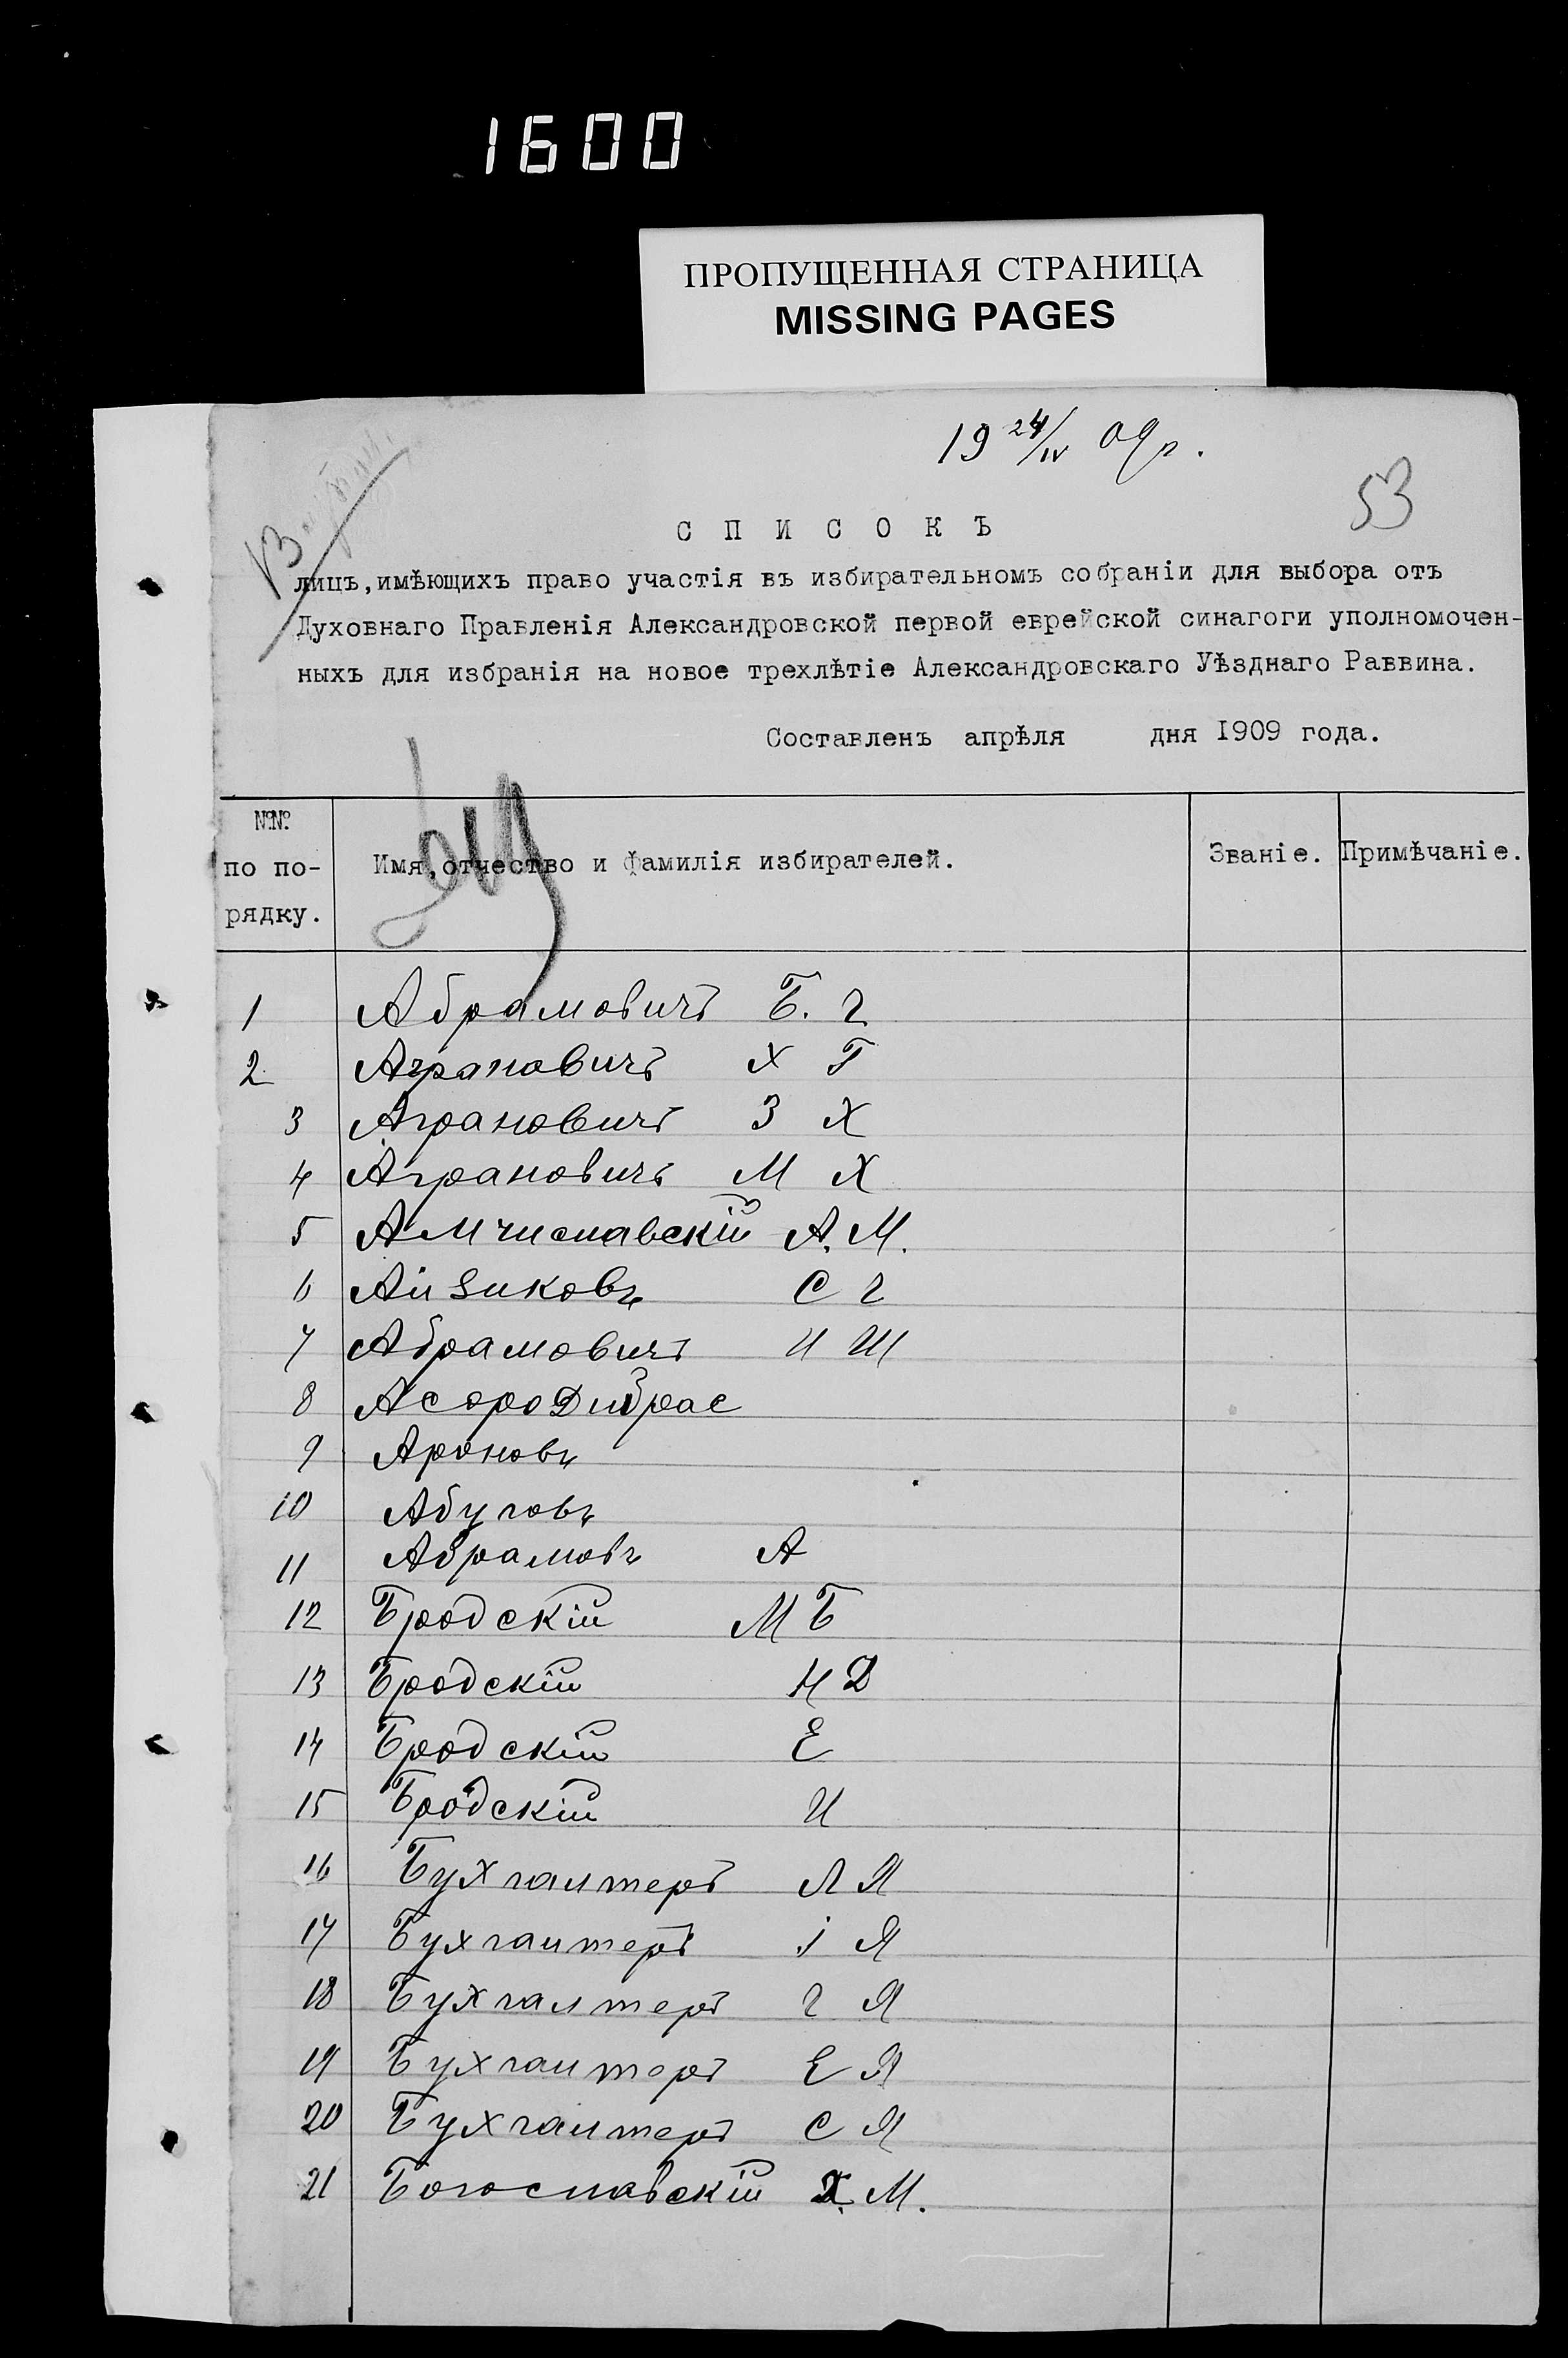 1600
ПРОПУЩЕННАЯ СТРАНИЦА
MISSING PAGES
19 24/IV 09 г.
53
СПИСОКЪ
лицъ, имѣющихъ право участія въ избирательномъ собраніи для выбора отъ
Духовнаго Правленія Александровской первой еврейской синагоги уполномочен-
ныхъ для избранія на новое трехлѣтіе Александровскаго Уѣзднаго Раввина.
Составленъ апрѣля дня 1909 года.
№№ по по-рядку. Имя, отчество и фамилія избирателей. Званіе. Примѣчаніе.
1 Абрамовичъ Б. Г
2 Аграновичъ Х Г
3 Аграновичъ З Х
4 Аграновичъ М Х
5 Амчиславскій А. М.
6 Айзиковъ С Г
7 Абрамовичъ И Ш
8 Асородибрас
9 Ароновъ
10 Абуговъ
11 Абрамовъ А
12 Бродскій М Б
13 Бродскій Н Д
14 Бродскій Е
15 Бродскій И
16 Бухгалтеръ Л Я
17 Бухгалтеръ І Я
18 Бухгалтеръ Г Я
19 Бухгалтеръ Е Я
20 Бухгалтеръ С Я
21 Богославскій М.